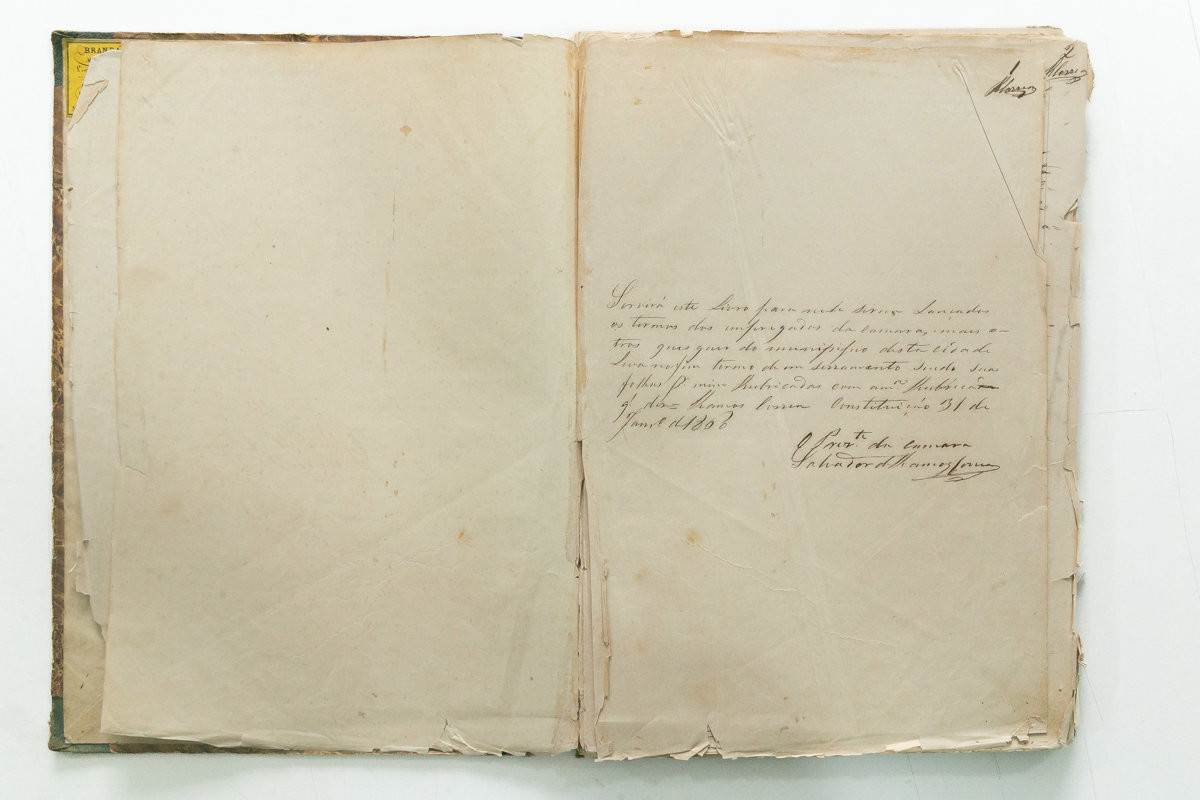 BRAND
1
RCorrea
2
RCorrea
Servirá este Livro para nelle serem Lançados
os termos dos empregados da Camara, e mais ou-
tros quis quer do municipio desta cidade
Leva no fim termo de em serramento sendo suas
folhas pr mim Rubricadas com a mª Rubrica
q' diz = Ramos Correa Constituição 31 de
Janrº d 1866
O Prezte da Camara
Salvador d Ramos Correa